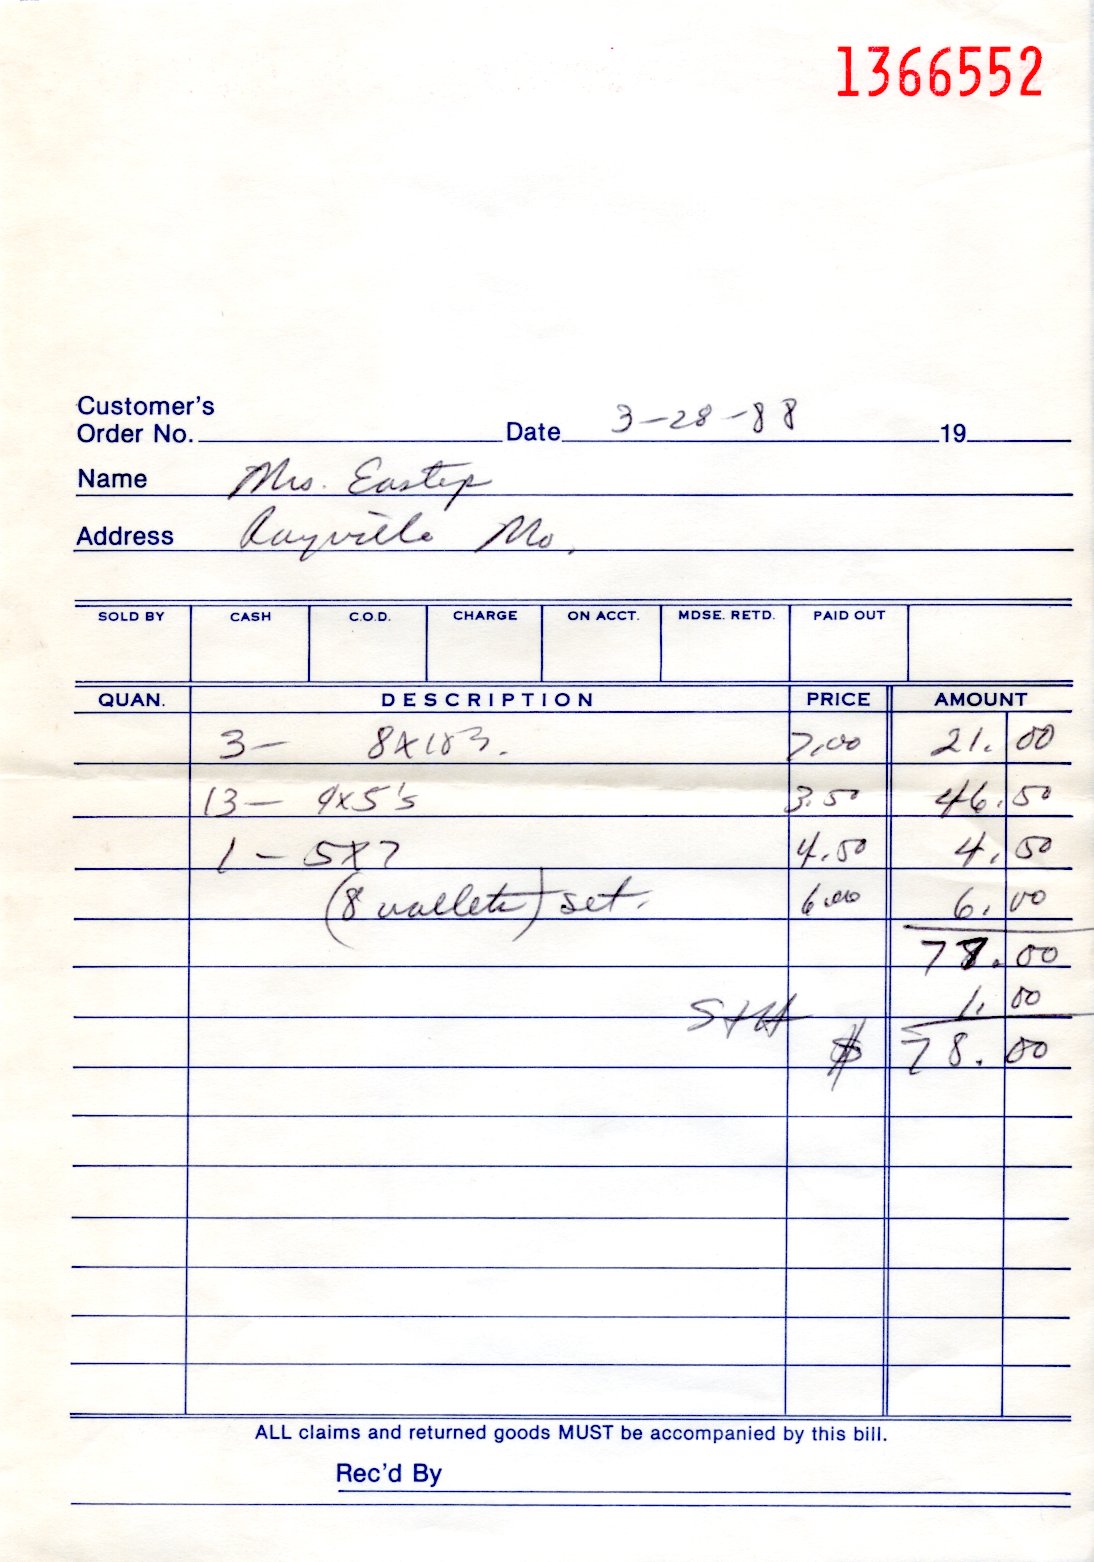 1366552
Customer's
Order No. Date 3-28-88 19
Name Mrs. Eastep
Address Rayville Mo.
SOLD BY CASH C.O.D. CHARGE ON ACCT. MDSE. RETD. PAID OUT
QUAN. DESCRIPTION PRICE AMOUNT
3- 8x10's. 7.00 21.00
13- 4x5's 3.50 46.50
1- 5x7 4.50 4.50
(8 wallets) set. 6.00 6.00
78.00
S+H 1.00
$ 78.00
ALL claims and returned goods MUST be accompanied by this bill.
Rec'd By